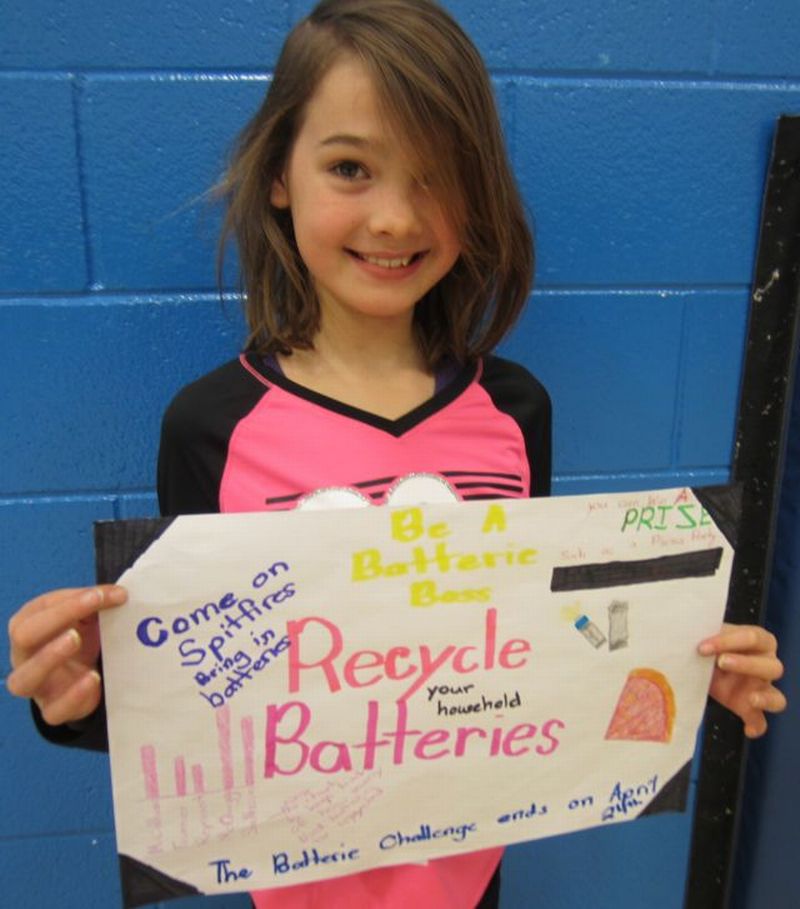 you can win A
PRISE
Such as a Pizza Party
Be A
Batterie
Boss
Come on
Spitfires
Bring in
batteries
Recycle
your
household
Batteries
The Batterie Challenge ends on April
24th